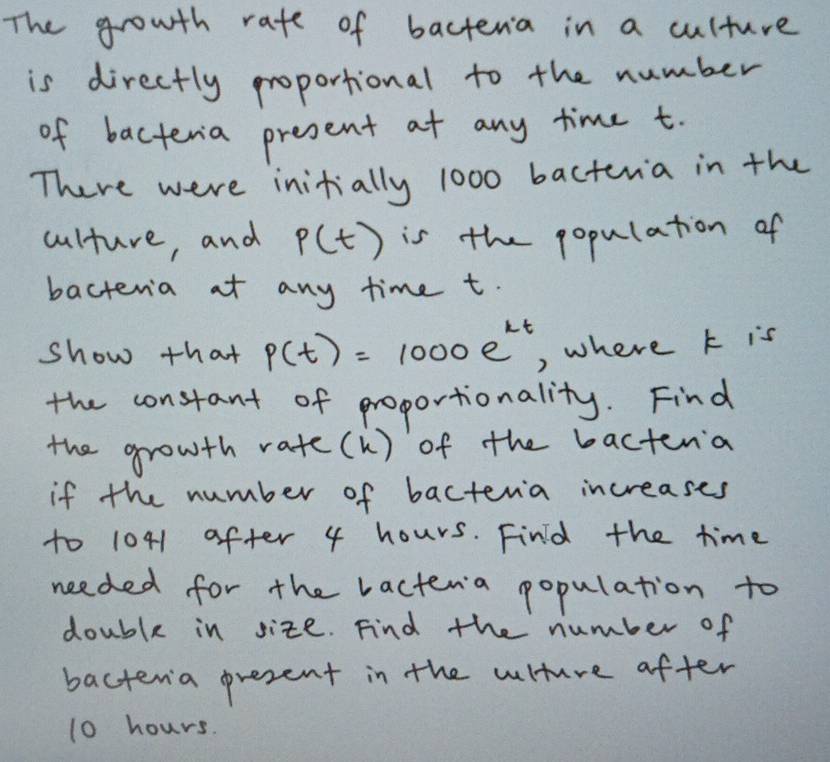 The growth rate of bacteria in a culture
is directly proportional to the number
of bacteria present at any time t.
There were initially 1000 bacteria in the
culture, and P(t) is the population of
bacteria at any time t.
Show that P(t) = 1000 e^kt, where k is
the constant of proportionality. Find
the growth rate (k) of the bacteria
if the number of bacteria increases
to 1041 after 4 hours. Find the time
needed for the bacteria population to
double in size. Find the number of
bacteria present in the culture after
10 hours.